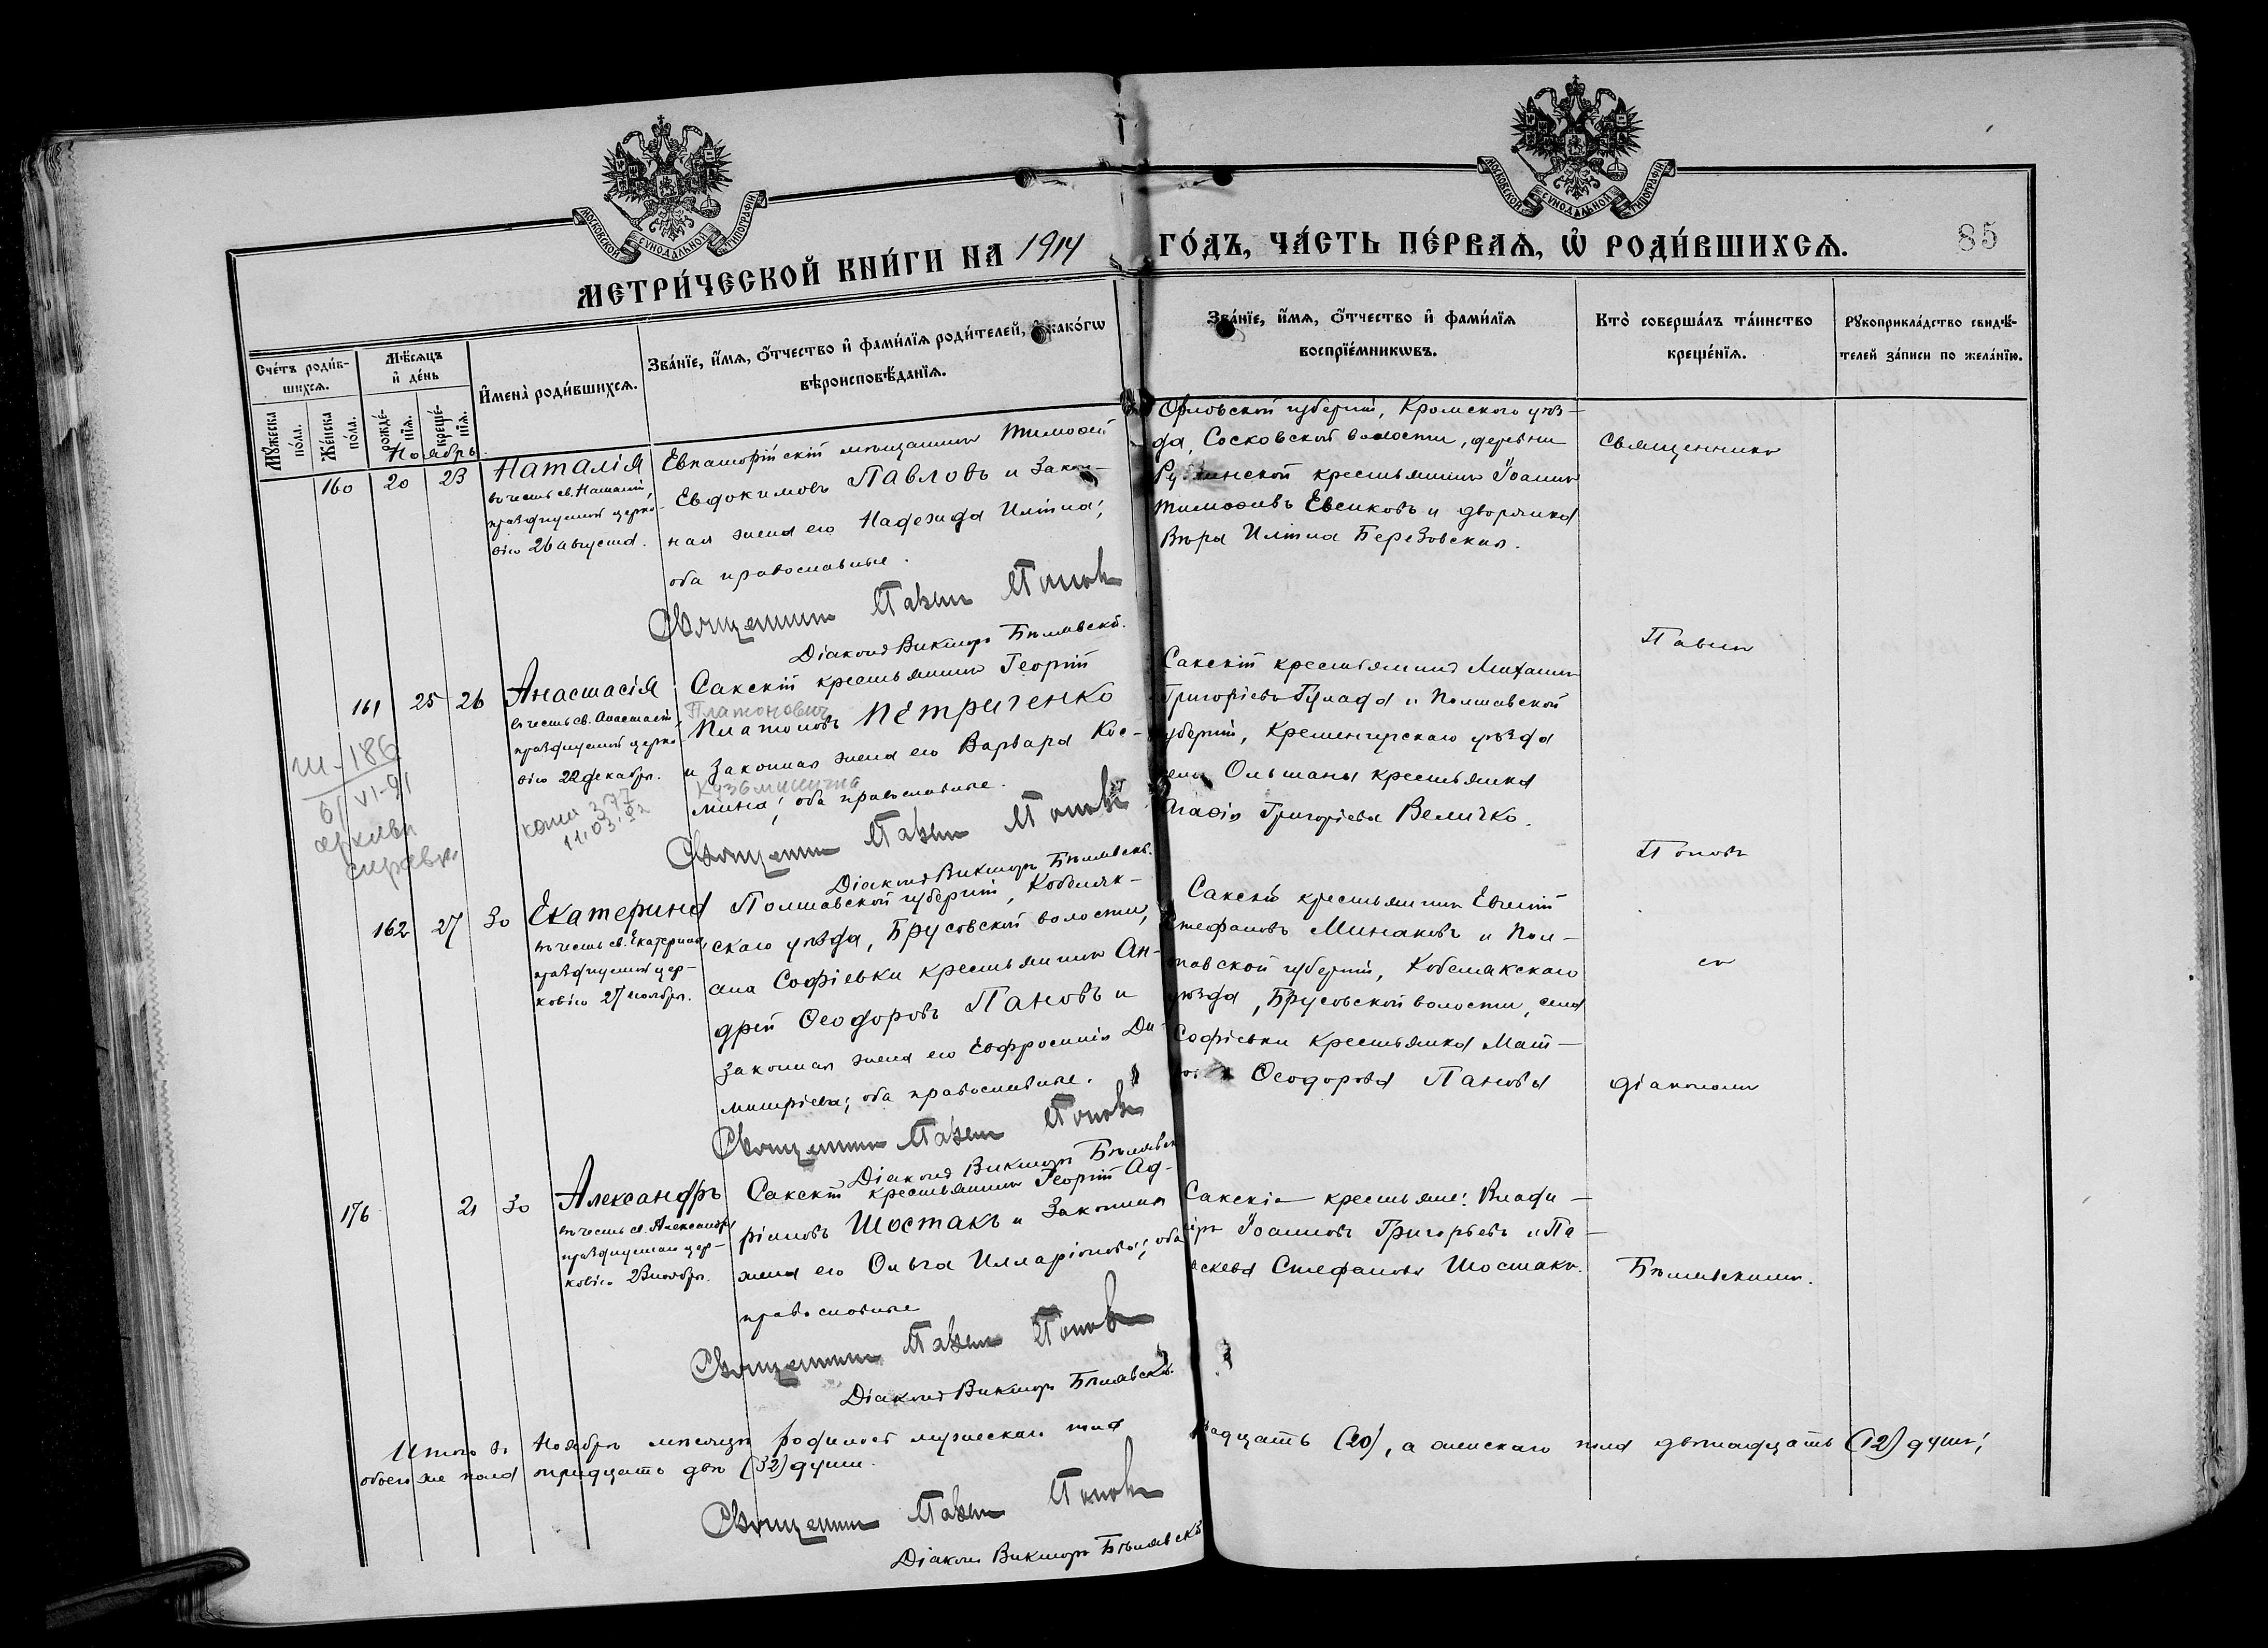 МОСКОВСКОЙ СѴНОДАЛЬНОЙ ТИПОГРАФІИ
МОСКОВСКОЙ СѴНОДАЛЬНОЙ ТИПОГРАФІИ
МЕТРИ́ЧЕСКОЙ КНИ́ГИ НА 1914 ГО́ДЪ, ЧА́СТЬ ПЕ́РВАѦ, Ѡ РОДИ́ВШИХСѦ.
85
Сче́тъ роди́в-
шихсѧ.
Мꙋ́жеска
по́ла.
Же́нска
по́ла.
Мѣ́сѧцъ
и҆ де́нь
рожде́-
нїѧ.
креще́-
нїѧ.
Имена̀ роди́вшихсѧ.
Зва́нїе, и҆́мѧ, ѻ҆́тчество и҆ фами́лїѧ роди́телей, и҆ како́гѡ
вѣроисповѣ́данїѧ.
Зва́нїе, и҆́мѧ, ѻ҆́тчество и҆ фами́лїѧ
воспрїе́мникѡвъ.
Кто̀ соверша́лъ та́инство
креще́нїѧ.
Рꙋкоприкла́дство свидѣ́-
телей за́писи по жела́нїю.
Ноябрь
160 20 23 Наталія
въ честь св. Наталіи,
празднуемой церко-
вію 26 августа.
Евпаторійскій мѣщанинъ Тимоѳей
Евдокимовъ Павловъ и закон-
ная жена его Надежда Иліина;
оба православные.
Священникъ Павелъ Поповъ
Діаконъ Викторъ Бѣлявскій.
Орловской губерніи, Кромского уѣз-
да, Сосковской волости, деревни
крестьянинъ Іоаннъ
Тимоѳеевъ Евсиковъ и дворянка
Вѣра Иліина Березовская.
Священникъ
161 25 26 Анастасія
въ честь св. Анастасіи,
празднуемой церко-
вію 22 декабря.
Сакскій крестьянинъ Георгій
Платонович
Платоновъ Петриченко
и законная жена его Варвара Кос-
Кузьминична
мина; оба православные.
Священникъ Павелъ Поповъ
Діаконъ Викторъ Бѣлявскій.
Сакскій крестьянинъ Михаилъ
Григорьевъ и Полтавской
губерніи, Кременчугскаго уѣзда
села Ольшаны крестьянка
Григорьева Величко.
Павелъ
186
VI-91
архивн
справк
копия 377
11.03.92
162 27 30 Екатерина
въ честь св. Екатерины,
празднуемой цер-
ковію 24 ноября.
Полтавской губерніи, Кобеляк-
скаго уѣзда, Брусовской волости,
села Софіевки крестьянинъ Ан-
дрей Ѳеодоровъ Пановъ и
законная жена его Евфросинія Ди-
митріева; оба православные.
Священникъ Павелъ Поповъ
Діаконъ Викторъ Бѣлявскій
Сакскій крестьянинъ Евгеній
Стефановъ Минаковъ и Пол-
тавской губерніи, Кобелякскаго
уѣзда, Брусовской волости, села
Софіевки крестьянка
Ѳеодорова Панова
Поповъ
съ
діакономъ
176 21 30 Александръ
въ честь св. Александра
празднуемаго цер-
ковію 23 ноября.
Сакскій крестьянинъ Георгій Ад-
ріановъ Шостакъ и законная
жена его Ольга Илларіонова; оба
православные
Священникъ Павелъ Поповъ
Діаконъ Викторъ Бѣлявскій.
Сакскіе крестьяне: Влади-
міръ Іоанновъ Григорьевъ и Па-
раскева Стефанова Шостакъ.
Бѣлявскимъ.
Итого въ Ноябрѣ мѣсяцѣ родилось мужескаго пола двадцать (20), а женскаго пола двѣнадцать (12) душъ;
обоего же пола тридцать двѣ (32) души.
Священникъ Павелъ Поповъ
Діаконъ Викторъ Бѣлявскій